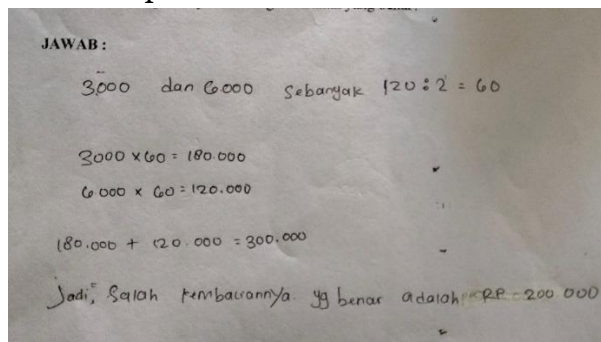 JAWAB :
3.000 dan 6000 Sebanyak 120 : 2 = 60
3000 x 60 = 180.000
6.000 x 60 = 120.000
180.000 + 120.000 = 300.000
Jadi, Salah yg benar adalah RP 200 000